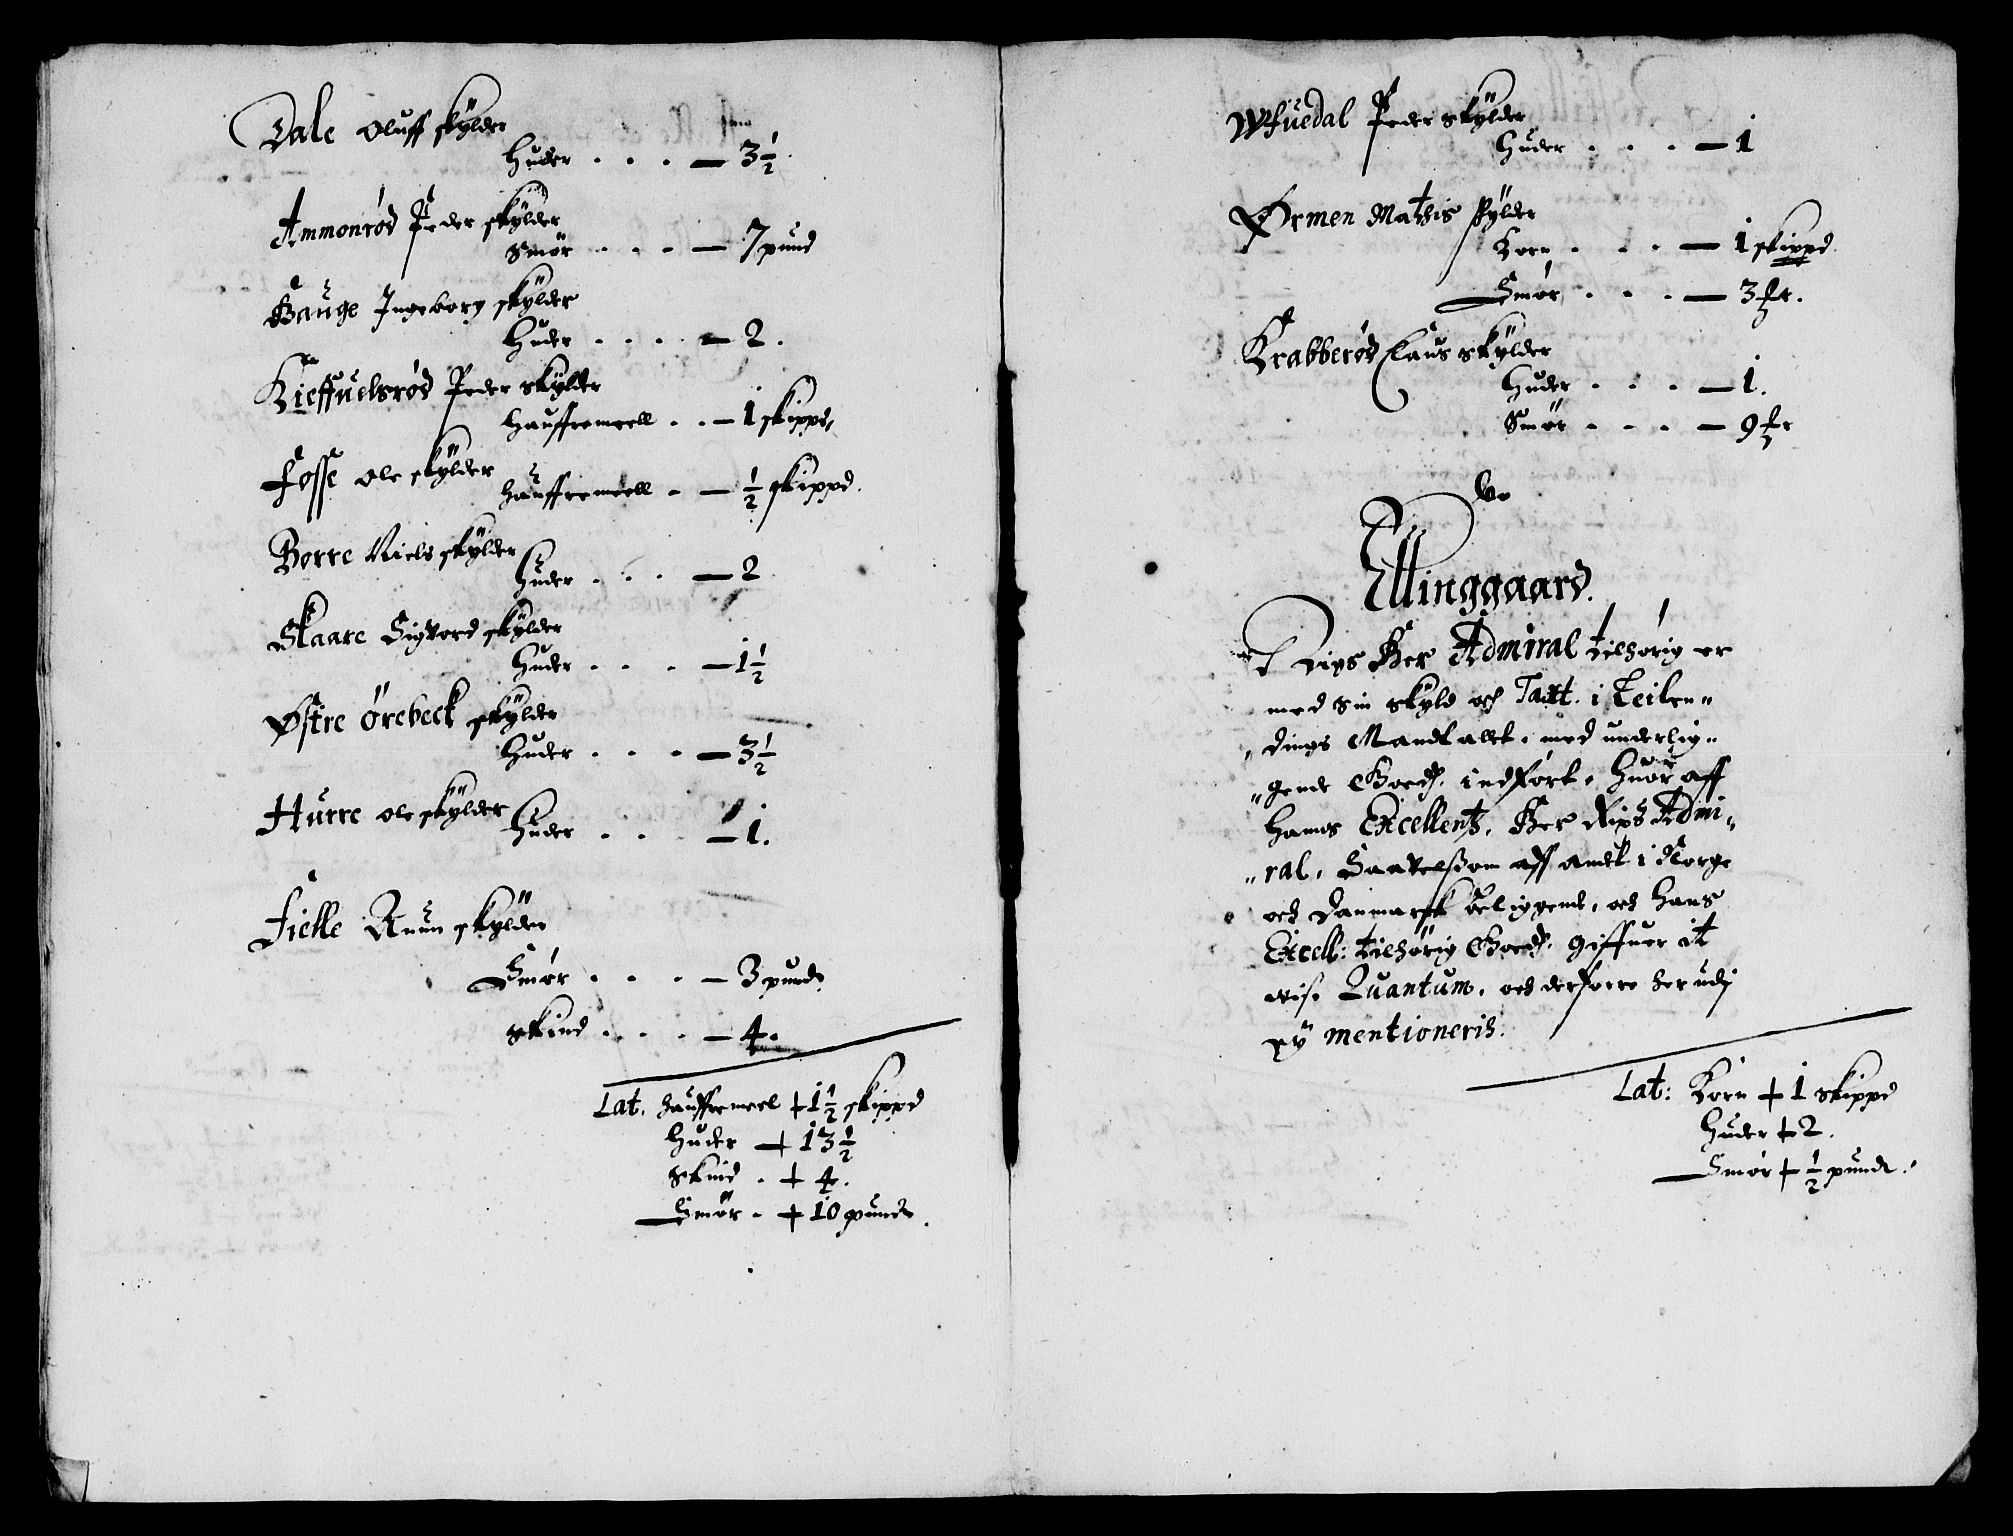 Dale Oluff skÿlder
Huder . . . — 3½
Ammonrød Peder skÿlder
Smör . . . — 7 pund
Bauge Ingeborg skÿlder
Huder . . . . — 2.
Kieffuelsrød Peder skÿlder
Hauffremeell . . — 1 skippd,
Fosse Ole skÿlder
hauffremeell . — ½ skippd.
Borre Niels skÿlder
Huder . . . — 2
Skaare Sigvord skÿlder
Huder . . . — 1½
Østre Örebeck skÿlder
Huder . . . — 3½
Hurre Ole skÿlder
Huder . . . — 1.
Fielle Anun skÿlder
Smør . . . — 3 pund
skind . . . — 4.
Lat. hauffremeel + 1½ skippd
Huder + 13½
Skind . + 4.
Smör . + 10 pund.
Wfuedal Peder skÿlder
Huder . . . — 1
Ørmen Mathis skÿlder
Korn . . . — 1 skippd
Smør . . . — 3 fr.
Krabberød Claus skÿlder
Huder . . . — 1.
Smör . . . — 9 fr
Ellinggaard.
Rigs Her Admiral tilhörig er
med sin skyld och Taxt. i
dings Mandtallt. med underlig„
„gende Goeds. indført. Huor aff
hans Excellentz. Her Rigs Admi„
„ral. Saavelsom aff andt i Norge
och Danmarck beliggende, och Hans
Excell: tilhörig Goeds. giffuer it
vise Quantum. och derforre her udj
eÿ mentioneris.
Lat: Korn + 1 skippd
Huder + 2.
Smør + ½ pund.